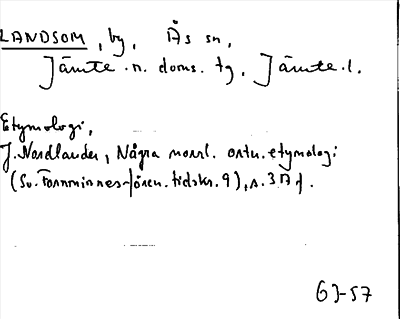 LANDSOM, by, Ås sn,
Jämte. n. doms. tg, Jämte. l.
Etymologi,
J. Nordlander, Några norrl. ortn. etymologi
(Sv. Fornminnesfören. tidskr. 9), s. f.
63-57